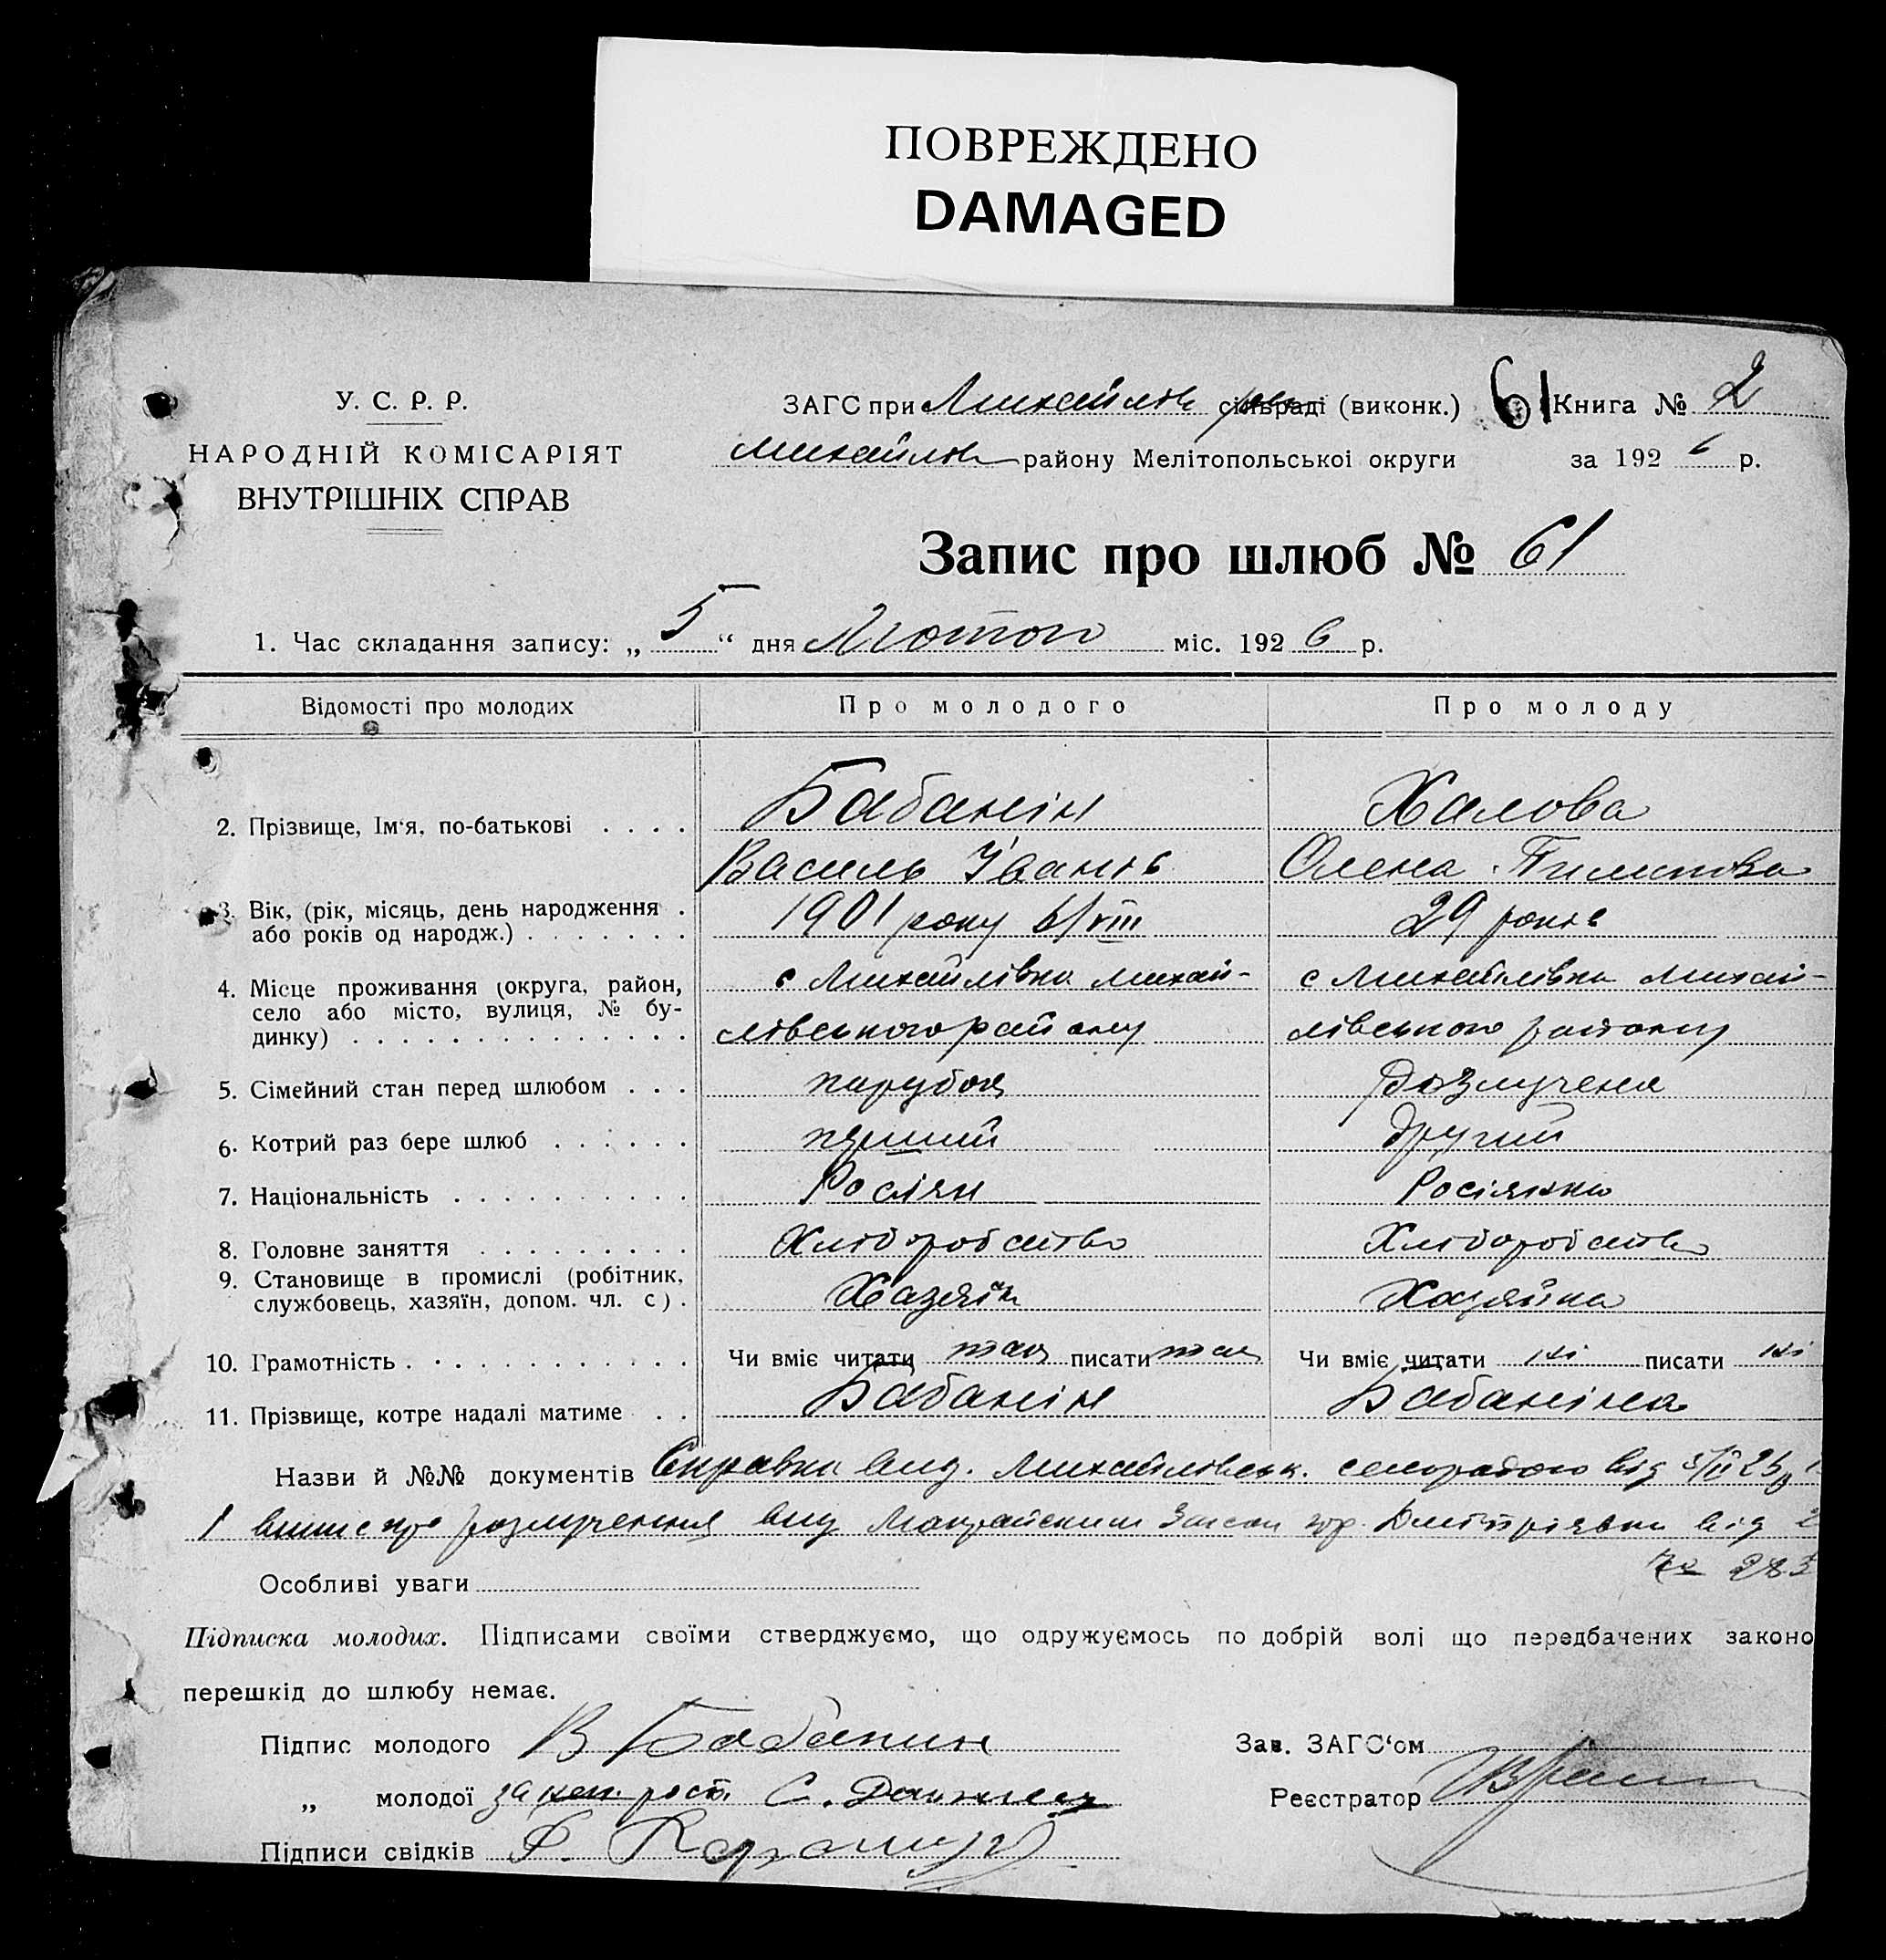 ПОВРЕЖДЕНО
DAMAGED
У. С. Р. Р.
НАРОДНІЙ КОМІСАРІЯТ
ВНУТРІШНІХ СПРАВ
ЗАГС при Михайлів сільраді (виконк.) 61 Книга № 2
Михайлів району Мелітопольської округи за 1926 р.
Запис про шлюб № 61
1. Час складання запису: „ 5 “ дня Лютого міс. 1926 р.
Відомості про молодих Про молодого Про молоду
2. Прізвище, Ім‘я, по-батькові . . . . Бабанін Халова
Василь Іванів Олена Пилипова
3. Вік, (рік, місяць, день народження . 1901 року 6/VIII 29 років
або років од народж.) . . . . . . .
4. Місце проживання (округа, район, с Михайлівка Михай- с Михайлівка Михай-
село або місто, вулиця, № бу-
динку) . . . . . . . . . . . . . . лівського району лівського району
5. Сімейний стан перед шлюбом . . . парубок Розлучена
6. Котрий раз бере шлюб . . . . . . перший другий
7. Національність . . . . . . . . . . Росіян Росіянка
8. Головне заняття . . . . . . . . . Хліборобство Хліборобство
9. Становище в промислі (робітник,
службовець, хазяїн, допом. чл. с) . Хазяїн Хазяйка
10. Грамотність . . . . . . . . . . . . Чи вміє читати так писати так Чи вміє читати ні писати ні
11. Прізвище, котре надалі матиме . . Бабанін Бабаніна
Назви й №№ документів Справка вид. Михайлівськ. сельрадою від 5/II 26 р
І випис про розлучення вид Загсом Дмітріявки від 2
№ 283
Особливі уваги
Підписка молодих. Підписами своїми стверджуємо, що одружуємось по добрій волі що передбачених законо
перешкід до шлюбу немає.
Підпис молодого В Бабанин Зав. ЗАГС‘ом
„ молодої за неп. рост. С. Реєстратор
Підписи свідків